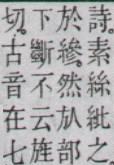 詩。素絲紕之
於縿。然㫃部
下斷不云旌
切。古音在七